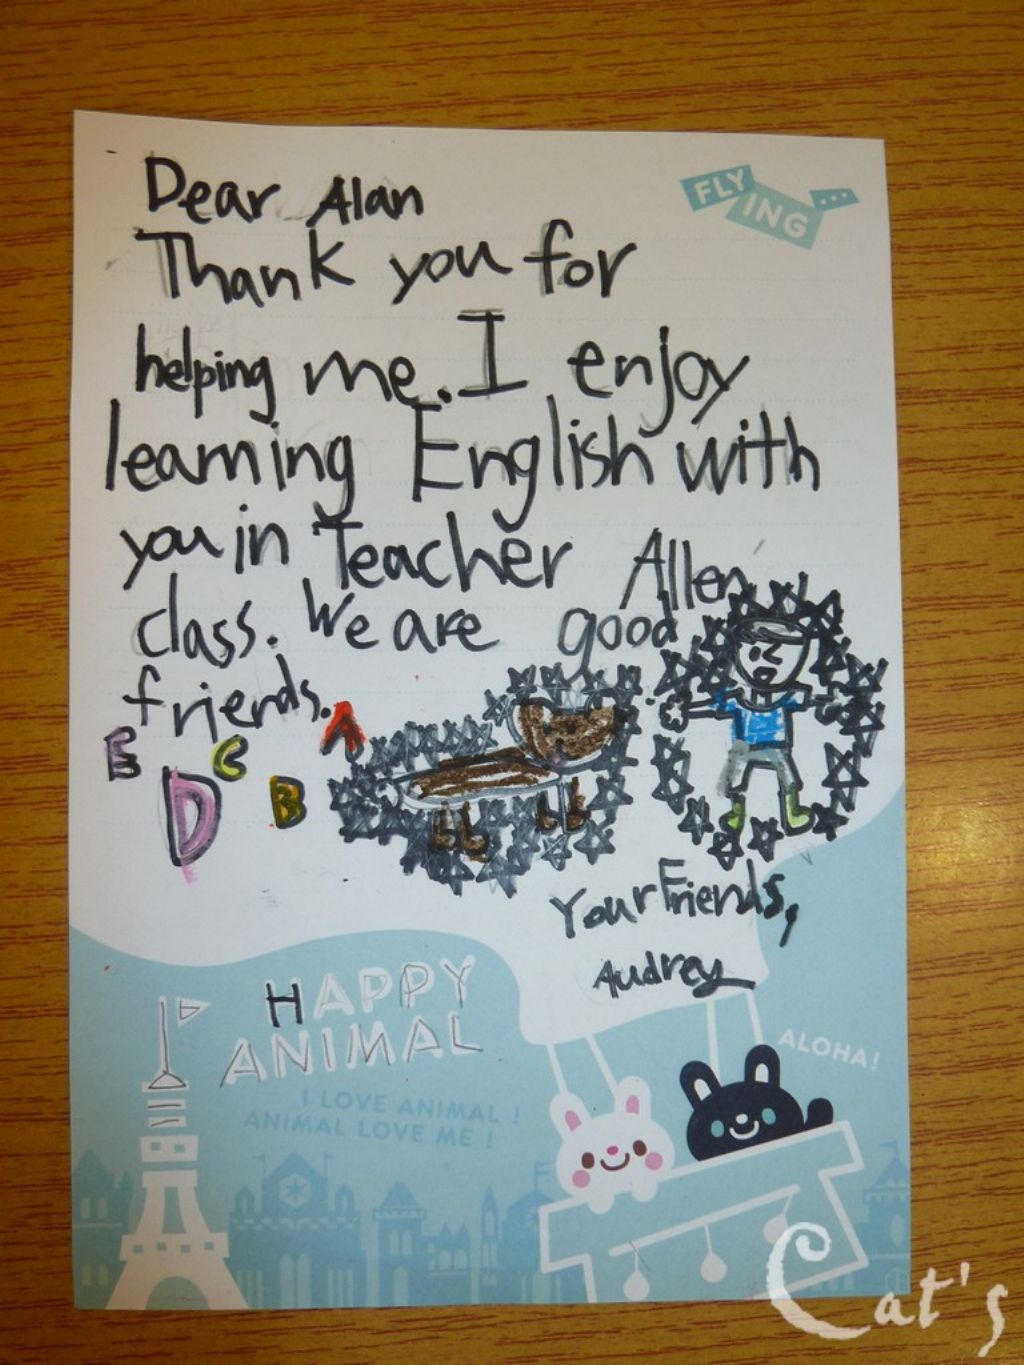 Dear Alan
FLY
ING
...
Thank you for
helping me. I enjoy
learning English with
you in Teacher Allen
class. We are good
friends.
E D C B A
Your Friends,
Audrey
HAPPY
ANIMAL
I LOVE ANIMAL !
ANIMAL LOVE ME !
ALOHA!
Cat's